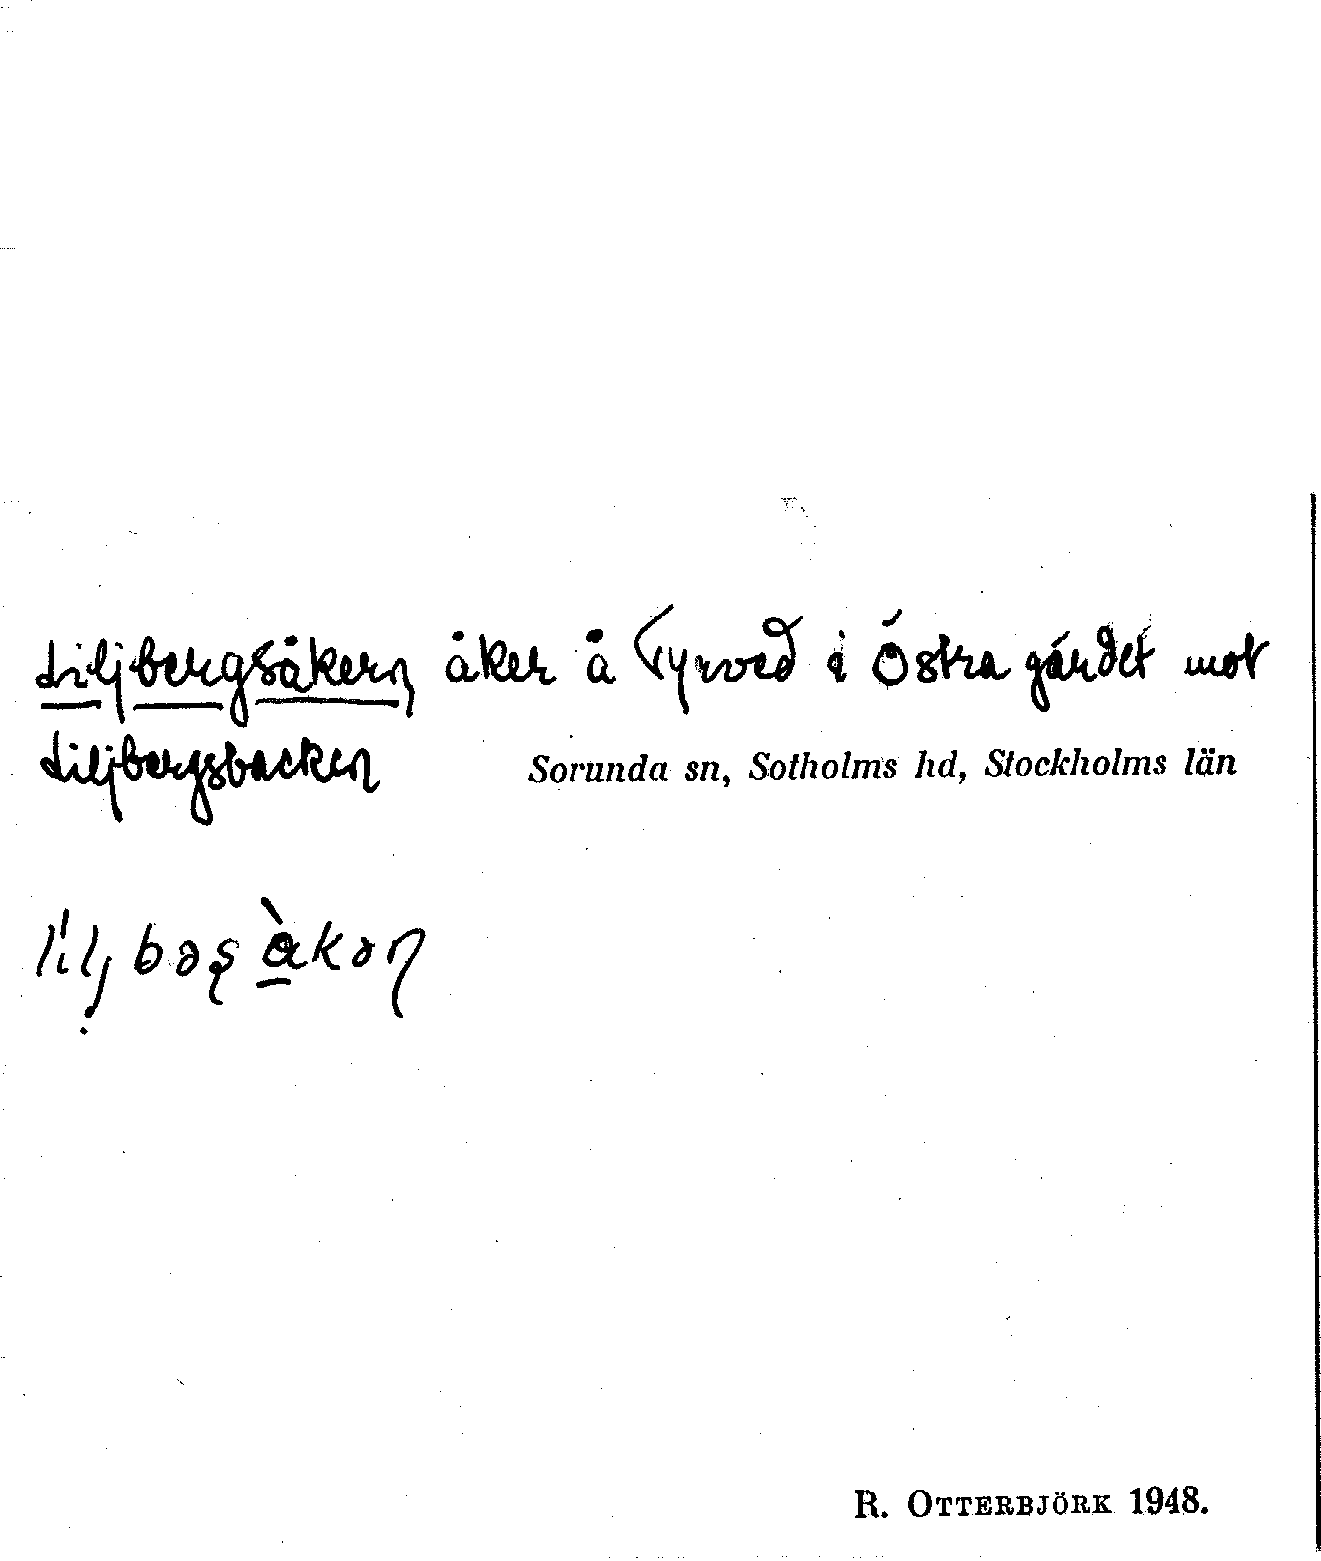 Liljbergsåkern åker å Fyrved i Östra gärdet mot
Liljbergsbacken Sorunda sn, Sotholms hd, Stockholms län
R. OTTERBJÖRK 1948.